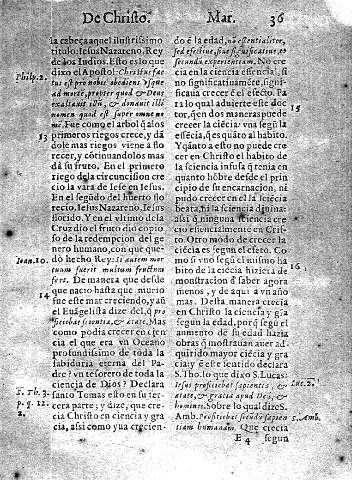 De Christo. Mar. 36
la cabeça aquel ilustrissimo
titulo: Iesus Nazareno, Rey
de los Iudios. Esto es lo que
dixo el Apostol: Christus fac
tus est pro nobis obediens vsque
ad mortē, propter quod & Deus
exaltauit illū, & donauit illi
nomen quod est super omne no
mē. Fue como el arbol q̄ a los
primeros riegos crece, y dā
dole mas riegos viene a flo
recer, y cōtinuandolos mas
dà su fruto. En el primero
riego de la circuncision cre
cio la vara de Iesse en Iesus.
En el segūdo del huerto flo
recio, Iesus Nazareno, Iesus
florido. Y en el vltimo de la
Cruz dio el fruto dio copio
so de la redempcion del ge
nero humano, con que que
dò hecho Rey: Si autem mor
tuum fuerit multum fructum
fert. De manera que desde
que nacio hasta que murio
fue este mar creciendo, y añ
el Euāgelista dize del, q̄ pro
ficiebat sciētia, & ætate. Mas
como podia crecer en ciencia
el que era vn Oceano
profundissimo de toda la
sabiduria eterna del Padre?
vn tesorero de toda la
ciencia de Dios? Declara
santo Tomas esto en su ter
cera parte; y dize, que cre
cia Christo en ciencia y gra
cia, assi como yua crecien-
Philip. 2.
13
Ioan. 10.
14
S. Th. 3.
p. q. 12.
2.
do ē la edad, no essentialiter,
sed effectiue, siue significatiue &
secundū experientiam. No cre
cia en la ciencia essencial, si
no significatiuamēte, signifi
caua crecer ē el efecto. Pa
ra lo qual aduierte este doc
tor, q̄ en dos maneras puede
crecer la ciēcia vna segū la
essēcia, q̄ es quāto al habito.
Y quāto a esto no puede cre
cer en Christo el habito de
la sciencia infusa q̄ tenia en
quanto hōbre desde el prin
cipio de su encarnacion, ni
pudo crecer en el la sciēcia
beata, ni la sciencia diuina:
assi q̄ ninguna sciencia cre
cio essencialmente en Cris-
to. Otro modo de crecer la
ciēcia es segun el efeto. Co
mo si vno segū el mismo ha
bito de la ciēcia hiziera de
monstracion ð saber agora
menos, y de aqui a vn año
mas. Desta manera crecia
en Christo la ciencia y g̃ra
segun la edad, porq̄ segū el
aumento de su edad hazia
obras q̄ mostrauan auer ad
quirido mayor ciēcia y gra
cia; y ē este sentido declara
S. Tho. lo que dixo S. Lucas:
Iesus proficiebat sapientia, &
ætate, & gratia apud Deū, &
homines. Sobre lo qual dize S.
Amb. Proficiebat secūdū sapien
tiam humanam. Que crecia
15
16
Luc. 2.
S. Amb.
E 4 segun